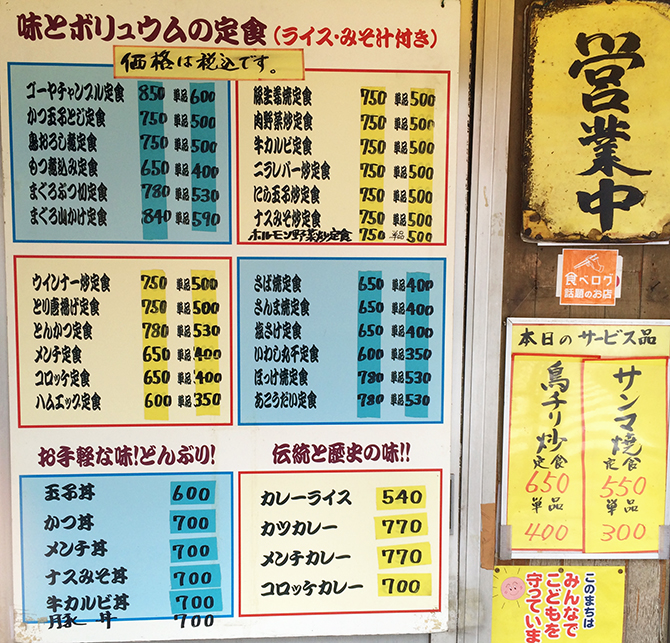 味とボリュウムの定食（ライス・みそ汁付き）
価格は税込です。
ゴーヤチャンプル定食 850 単品 600
かつ玉子とじ定食 750 単品 500
鳥おろし煮定食 750 単品 500
もつ煮込み定食 650 単品 400
まぐろぶつ切定食 780 単品 530
まぐろ山かけ定食 840 単品 590
豚生姜焼定食 750 単品 500
肉野菜炒定食 750 単品 500
牛カルビ定食 750 単品 500
ニラレバー炒定食 750 単品 500
にら玉子炒定食 750 単品 500
ナスみそ炒定食 750 単品 500
ホルモン野菜炒定食 750 単品 500
ウインナー炒定食 750 単品 500
とり唐揚げ定食 750 単品 500
とんかつ定食 780 単品 530
メンチ定食 650 単品 400
コロッケ定食 650 単品 400
ハムエッグ定食 600 単品 350
さば焼定食 650 単品 400
さんま焼定食 650 単品 400
塩さけ定食 650 単品 400
いわし丸干定食 600 単品 350
ほっけ焼定食 780 単品 530
あこうだい定食 780 単品 530
お手軽な味！どんぶり！
玉子丼 600
かつ丼 700
メンチ丼 700
ナスみそ丼 700
牛カルビ丼 700
豚丼 700
伝統と歴史の味！！
カレーライス 540
カツカレー 770
メンチカレー 770
コロッケカレー 700
営業中
食べログ
話題のお店
本日のサービス品
サンマ焼定食
550
単品
300
鳥チリ炒定食
650
単品
400
このまちは
みんなで
こどもを
守っていま